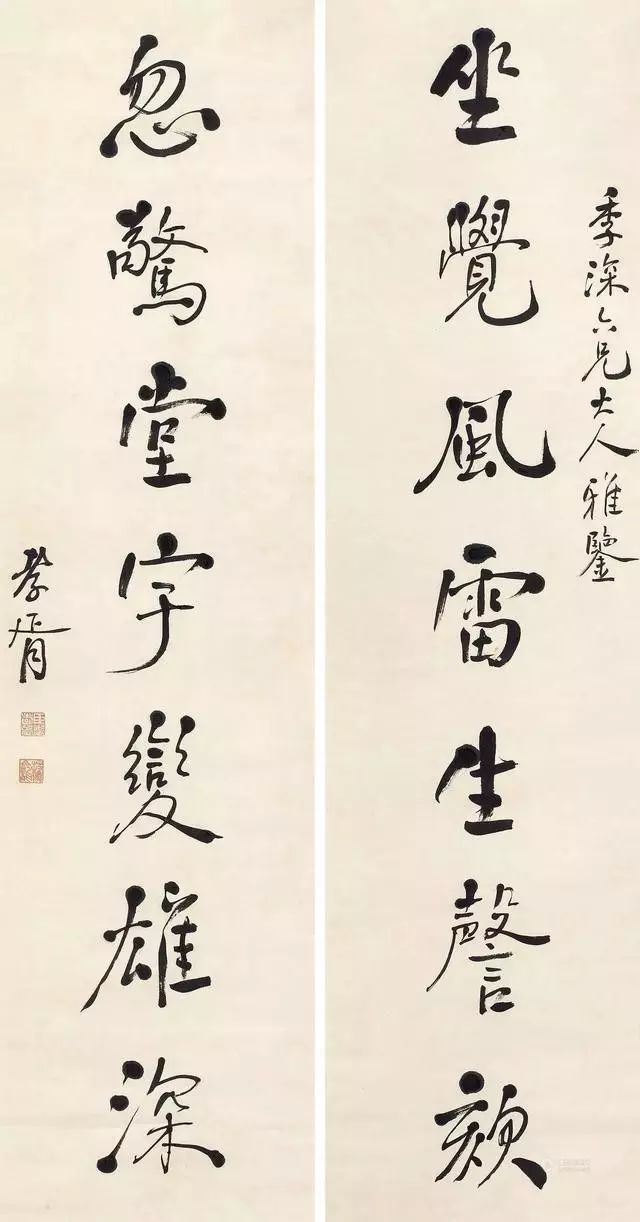 季深六兄大人雅鑒
坐覺風雷生謦欬
忽驚堂宇變雄深
孝胥